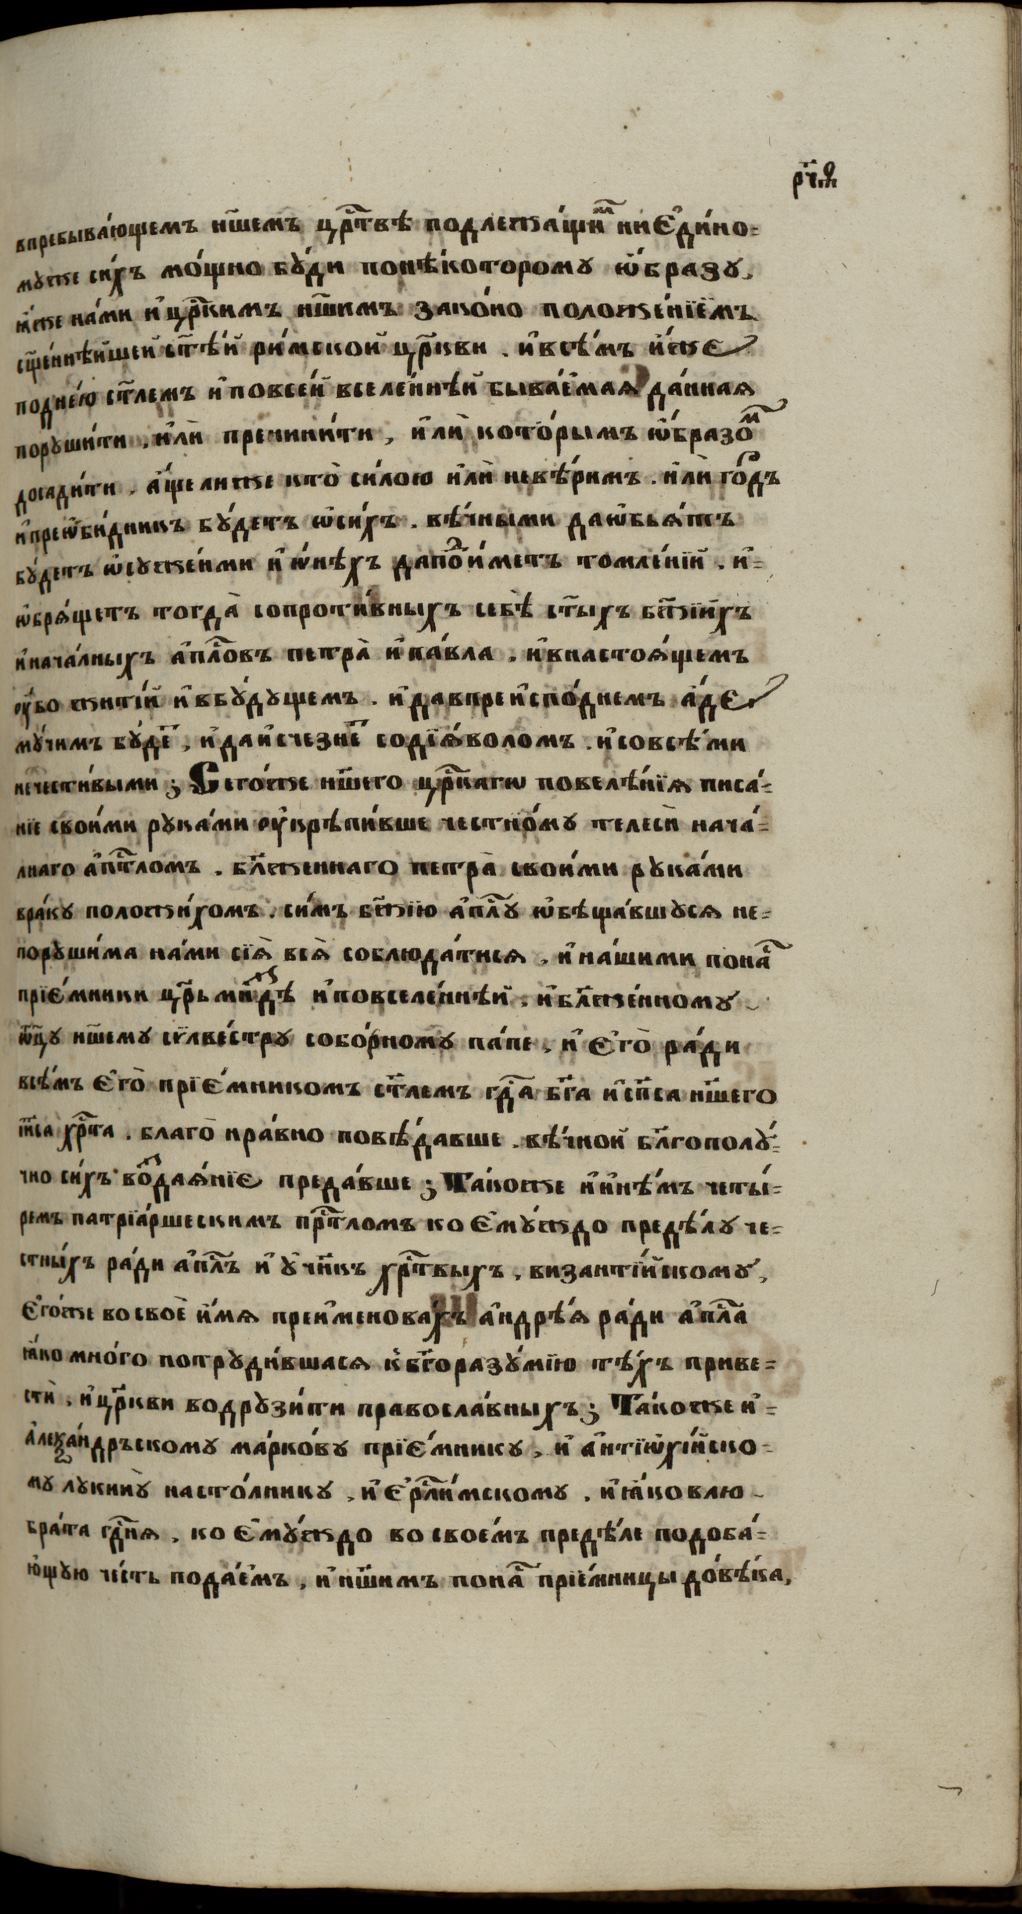 рч҃ѳ
впребыва́ющемъ нш҃емъ црⷭ҇твѣ подлежа́щиⷨ ниеди́но-
мꙋже си́хъ мо́щно бꙋ́ди понѣ́которомꙋ ѡ҆́бразꙋ,
ꙗ҆́же на́ми и҆ црⷭ҇кимъ нш҃имъ зако́но положе́нїемъ
сщ҃е́ннѣйшей ст҃ѣ́й ри́мской цр҃кви . и҆ всѣ́мъ и҆́же
под̾не́ю ст҃лемъ и҆ повсе́й вселе́ннѣй быва́емая да́нная
порꙋши́ти , и҆лѝ пречини́ти , и҆лѝ кото́рымъ ѡ҆́бразоⷨ
досади́ти . а҆́щелиже кто̀ си́лою и҆лѝ невѣ́римъ . и҆лѝ го́рдъ
и҆ преѡби́дникъ бꙋ́детъ ѡ҆си́хъ . вѣ́чными даѡбья́тъ
бꙋ́детъ ѡ҆сꙋже́ими и҆ ѡ҆нѣ́хъ дапо́двиметъ томле́нїй . и҆-
ѡ҆бря́щетъ тогда̀ сопроти́вныхъ себѣ̀ ст҃ы́хъ бж҃їихъ
и҆ нача́лныхъ а҆пⷭ҇ловъ петра̀ и҆ па́вла . и҆ внастоя́щемъ
ᲂу҆́бо житїѝ и҆ вбꙋ́дꙋщемъ . и҆ давпреиспо́днемъ а҆́де
мꙋ́чимъ бꙋ́деⷮ , и҆ даисче́знеⷮ содїа́воломъ . и҆ совсѣ́ми
нечести́выми ; Сего́же нш҃его црⷭ҇кагѡ повелѣ́нїя писа́-
нїе свои́ми рꙋка́ми ᲂу҆крѣпи́вше че́стномꙋ телесѝ нача́-
лнаго а҆пⷭ҇толомъ . бл҃же́ннаго петра̀ свои́ми рꙋка́ми
вра́кꙋ положи́хомъ . си́мъ бж҃їю а҆пⷭ҇лꙋ ѡ҆бѣща́вшꙋся не-
порꙋши́ма на́ми сїя̀ вся̀ соблюда́тися , и҆ на́шими понаⷭ҇
прїе́мники цр҃ьми вⷥдѣ̀ и҆ повселе́ннѣй . и҆ бл҃же́нномꙋ
ѻ҆ц҃ꙋ нш҃емꙋ сїлве́стрꙋ собо́рномꙋ па́пе , и҆ є҆го̀ ра́ди
всѣ́мъ є҆го̀ прїе́мникомъ ст҃лемъ гдⷭ҇а бг҃а и҆ сп҃са нш҃его
і҆и҃са хрⷭ҇та . благо̀ нра́вно повѣ́давше . вѣ́чной бл҃гополꙋ́-
чно си́хъ воⷥдая́нїе преда́вше ; Та́коже и҆ и҆нѣ́мъ четы́-
ремъ патрїа́ршескимъ прⷭ҇тломъ ко є҆мꙋ́ждо предѣ́лꙋ че-
стны́хъ ра́ди а҆пⷭ҇лъ и҆ ᲂу҆чн҃къ хрⷭ҇твыхъ , византі́йскомꙋ,
є҆го́же восвоѐ и҆́мя преименова́хъ а҆ндрѣ́я ра́ди а҆пⷭ҇ла
ꙗ҆́ко мно́го потрꙋди́вшася к̾бг҃оразꙋ́мїю тѣ́хъ приве-
стѝ . и҆ цр҃кви водрꙋзи́ти правосла́вныхъ ; Та́коже и҆-
а҆леѯа́ндрьскомꙋ ма́рковꙋ прїе́мникꙋ , и҆ а҆нтїѡхі́йско-
мꙋ лꙋкинꙋ̀ насто́лникꙋ , и҆ є҆рⷭ҇ли́мскомꙋ . и҆ ꙗ҆́ковлю
бра́та гдⷭ҇ня , ко є҆мꙋ́ждо восвое́мъ предѣ́ле подоба́-
ющꙋю че́сть подае́мъ , и҆ нш҃имъ понаⷭ҇ прїе́мницы до́вѣ́ка,